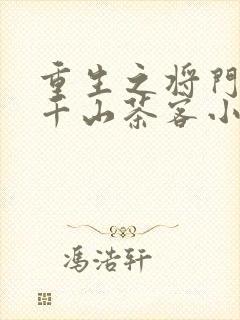 重生之将門
千山茶客小
冯浩轩